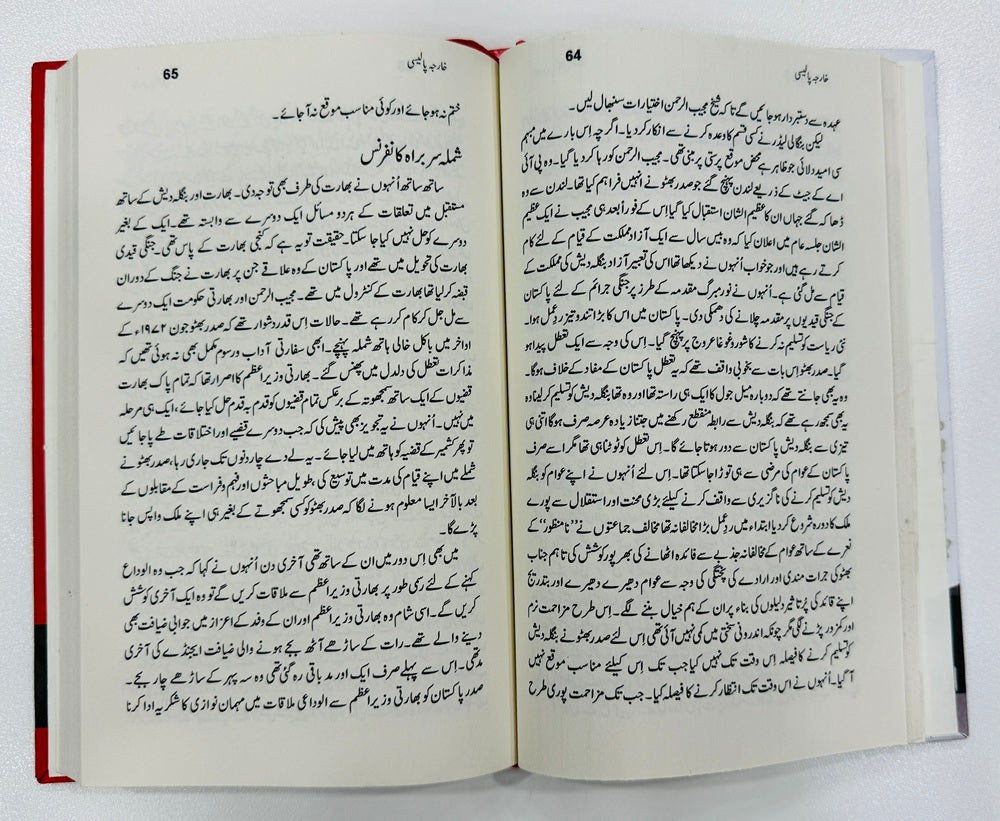 64
خارجہ پالیسی
عہدہ سے دستبردار ہو جائیں گے تاکہ شیخ مجیب الرحمن اختیارات سنبھال لیں۔
لیکن بنگالی لیڈر نے کسی قسم کا وعدہ کرنے سے انکار کر دیا۔ اگرچہ اِس بارے میں مبہم
سی امید دلائی جو ظاہر ہے محض موقع پرستی پر مبنی تھی۔ مجیب الرحمن کو رہا کر دیا گیا۔ وہ پی آئی
اے کے جیٹ کے ذریعے لندن پہنچ گئے جو صدر بھٹو نے انہیں فراہم کیا تھا۔ لندن سے وہ
ڈھاکہ گئے جہاں ان کا عظیم الشان استقبال کیا گیا اِس کے فوراً بعد ہی مجیب نے ایک عظیم
الشان جلسہ عام میں اعلان کیا کہ وہ بیس سال سے ایک آزاد مملکت کے قیام کے لئے کام
کرتے رہے ہیں اور جو خواب اُنہوں نے دیکھا تھا اس کی تعبیر آزاد بنگلہ دیش کی مملکت کے
قیام سے مل گئی ہے۔ اُنہوں نے نورمبرگ مقدمہ کے طرز پر جنگی جرائم کے لئے پاکستان
کے جنگی قیدیوں پر مقدمہ چلانے کی دھمکی دی۔ پاکستان میں اس کا بڑا تند و تیز ردِعمل ہوا۔
نئی ریاست کو تسلیم نہ کرنے کا شور و غوغا عروج پر پہنچ گیا۔ اِس کی وجہ سے ایک تعطل پیدا ہو
گیا۔ صدر بھٹو اِس بات سے بخوبی واقف تھے کہ یہ تعطل پاکستان کے مفاد کے خلاف ہوگا۔
وہ یہ بھی جانتے تھے کہ دوبارہ میل جول کا ایک ہی راستہ تھا اور وہ تھا بنگلہ دیش کو تسلیم کر لینا وہ
یہ بھی سمجھ رہے تھے کہ بنگلہ دیش سے رابطہ منقطع رکھنے میں جتنا زیادہ عرصہ صرف ہوگا اتنی ہی
تیزی سے بنگلہ دیش پاکستان سے دور ہوتا جائے گا۔ اِس تعطل کو ٹوٹنا ہی تھا مگر اسے صرف
پاکستان کے عوام کی مرضی سے ہی توڑا جا سکتا تھا۔ اِس لئے اُنہوں نے اپنے عوام کو بنگلہ
دیش کو تسلیم کرنے کی ناگزیری سے واقف کرنے کیلئے بڑی محنت اور استقلال سے پورے
ملک کا دورہ شروع کر دیا ابتداء میں ردِعمل بڑا مخالفانہ تھا مخالف جماعتوں نے ”نامنظور“ کے
نعرے کے ساتھ عوام کے مخالفانہ جذبے سے فائدہ اٹھانے کی بھرپور کوشش کی تاہم جناب
بھٹو کی جرات مندی اور ارادے کی پختگی کی وجہ سے عوام دھیرے دھیرے اور بتدریج
اپنے قائد کی پُر تاثیر دلیلوں کی بناء پر ان کے ہم خیال بننے لگے۔ اِس طرح مزاحمت نرم
اور کمزور پڑنے لگی مگر چونکہ اندرونی سختی میں کمی نہیں آئی تھی اِس لئے صدر بھٹو نے بنگلہ دیش
کو تسلیم کرنے کا فیصلہ اِس وقت تک نہیں کیا جب تک اِس کیلئے مناسب موقع نہیں
آ گیا۔ اُنہوں نے اس وقت تک انتظار کرنے کا فیصلہ کیا۔ جب تک مزاحمت پوری طرح
65
خارجہ پالیسی
ختم نہ ہو جائے اور کوئی مناسب موقع نہ آ جائے۔
شملہ سربراہ کانفرنس
ساتھ ساتھ اُنہوں نے بھارت کی طرف بھی توجہ دی۔ بھارت اور بنگلہ دیش کے ساتھ
مستقبل میں تعلقات کے ہر دو مسائل ایک دوسرے سے وابستہ تھے۔ ایک کے بغیر
دوسرے کو حل نہیں کیا جا سکتا۔ حقیقت تو یہ ہے کہ کنجی بھارت کے پاس تھی۔ جنگی قیدی
بھارت کی تحویل میں تھے اور پاکستان کے وہ علاقے جن پر بھارت نے جنگ کے دوران
قبضہ کر لیا تھا بھارت کے کنٹرول میں تھے۔ مجیب الرحمن اور بھارتی حکومت ایک دوسرے
سے مل جل کر کام کر رہے تھے۔ حالات اِس قدر دشوار تھے کہ صدر بھٹو جون ۱۹۷۲ء کے
اواخر میں بالکل خالی ہاتھ شملہ پہنچے۔ ابھی سفارتی آداب و رسوم مکمل بھی نہ ہوئی تھیں کہ
مذاکرات تعطل کی دلدل میں پھنس گئے۔ بھارتی وزیر اعظم کا اصرار تھا کہ تمام پاک بھارت
قضیوں کے ایک ساتھ سمجھوتہ کے برعکس تمام قضیوں کو قدم بہ قدم حل کیا جائے، ایک ہی مرحلہ
میں نہیں۔ اُنہوں نے یہ تجویز بھی پیش کی کہ جب دوسرے قضیے اور اختلافات طے پا جائیں
تو پھر کشمیر کے قضیہ کو ہاتھ میں لیا جائے۔ یہ لے دے چار دنوں تک جاری رہا، صدر بھٹو نے
شملے میں اپنے قیام کی مدت میں توسیع کی، طویل مباحثوں اور فہم و فراست کے مقابلوں کے
بعد بالآخر ایسا معلوم ہونے لگا کہ صدر بھٹو کو کسی سمجھوتے کے بغیر ہی اپنے ملک واپس جانا
پڑے گا۔
میں بھی اِس دور میں ان کے ساتھ تھی آخری دن اُنہوں نے کہا کہ جب وہ الوداع
کہنے کے لئے رسمی طور پر بھارتی وزیر اعظم سے ملاقات کریں گے تو وہ ایک آخری کوشش
کریں گے۔ اسی شام وہ بھارتی وزیر اعظم اور ان کے وفد کے اعزاز میں جوابی ضیافت بھی
دینے والے تھے۔ رات کے ساڑھے آٹھ بجے ہونے والی ضیافت ایجنڈے کی آخری
مد تھی۔ اِس سے پہلے صرف ایک اور مد باقی رہ گئی تھی وہ سہ پہر کے ساڑھے چار بجے۔
صدر پاکستان کو بھارتی وزیر اعظم سے الوداعی ملاقات میں مہمان نوازی کا شکریہ ادا کرنا